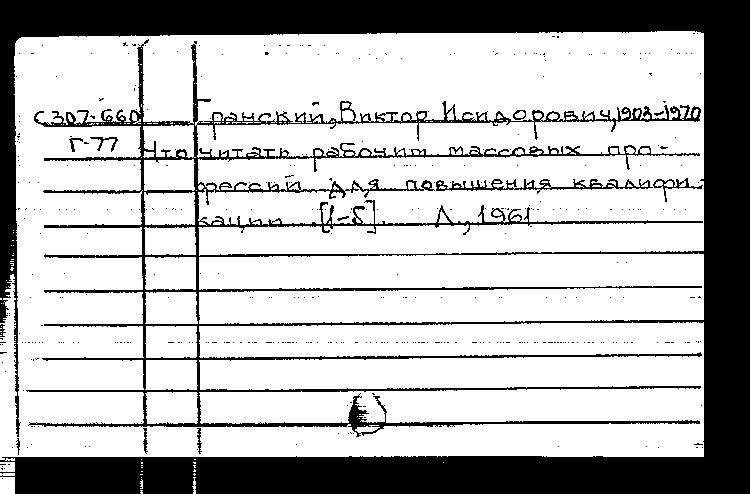 С307-660 Гранский, Виктор Исидорович, 1903-1970
Г-77 Что читать рабочим массовых про-
фессий для повышения квалифи-
кации [1-5]. Л., 1961